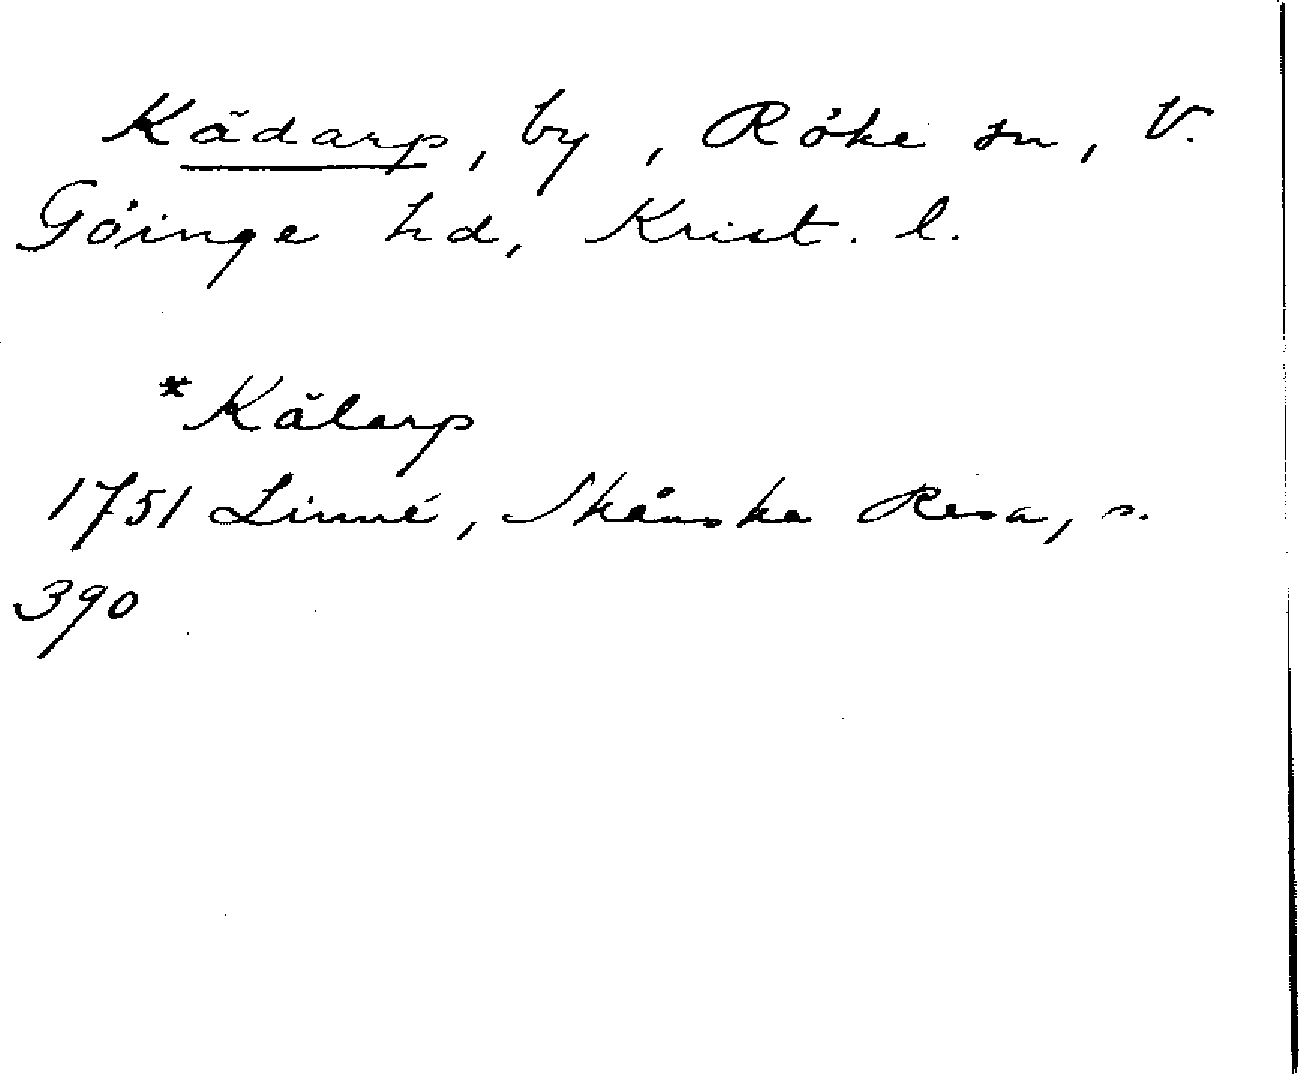 Kädarp, by, Röke sn, V.
Göinge hd, Krist. l.
*Kälarp
1751 Linné, Skånska Resa, s.
390